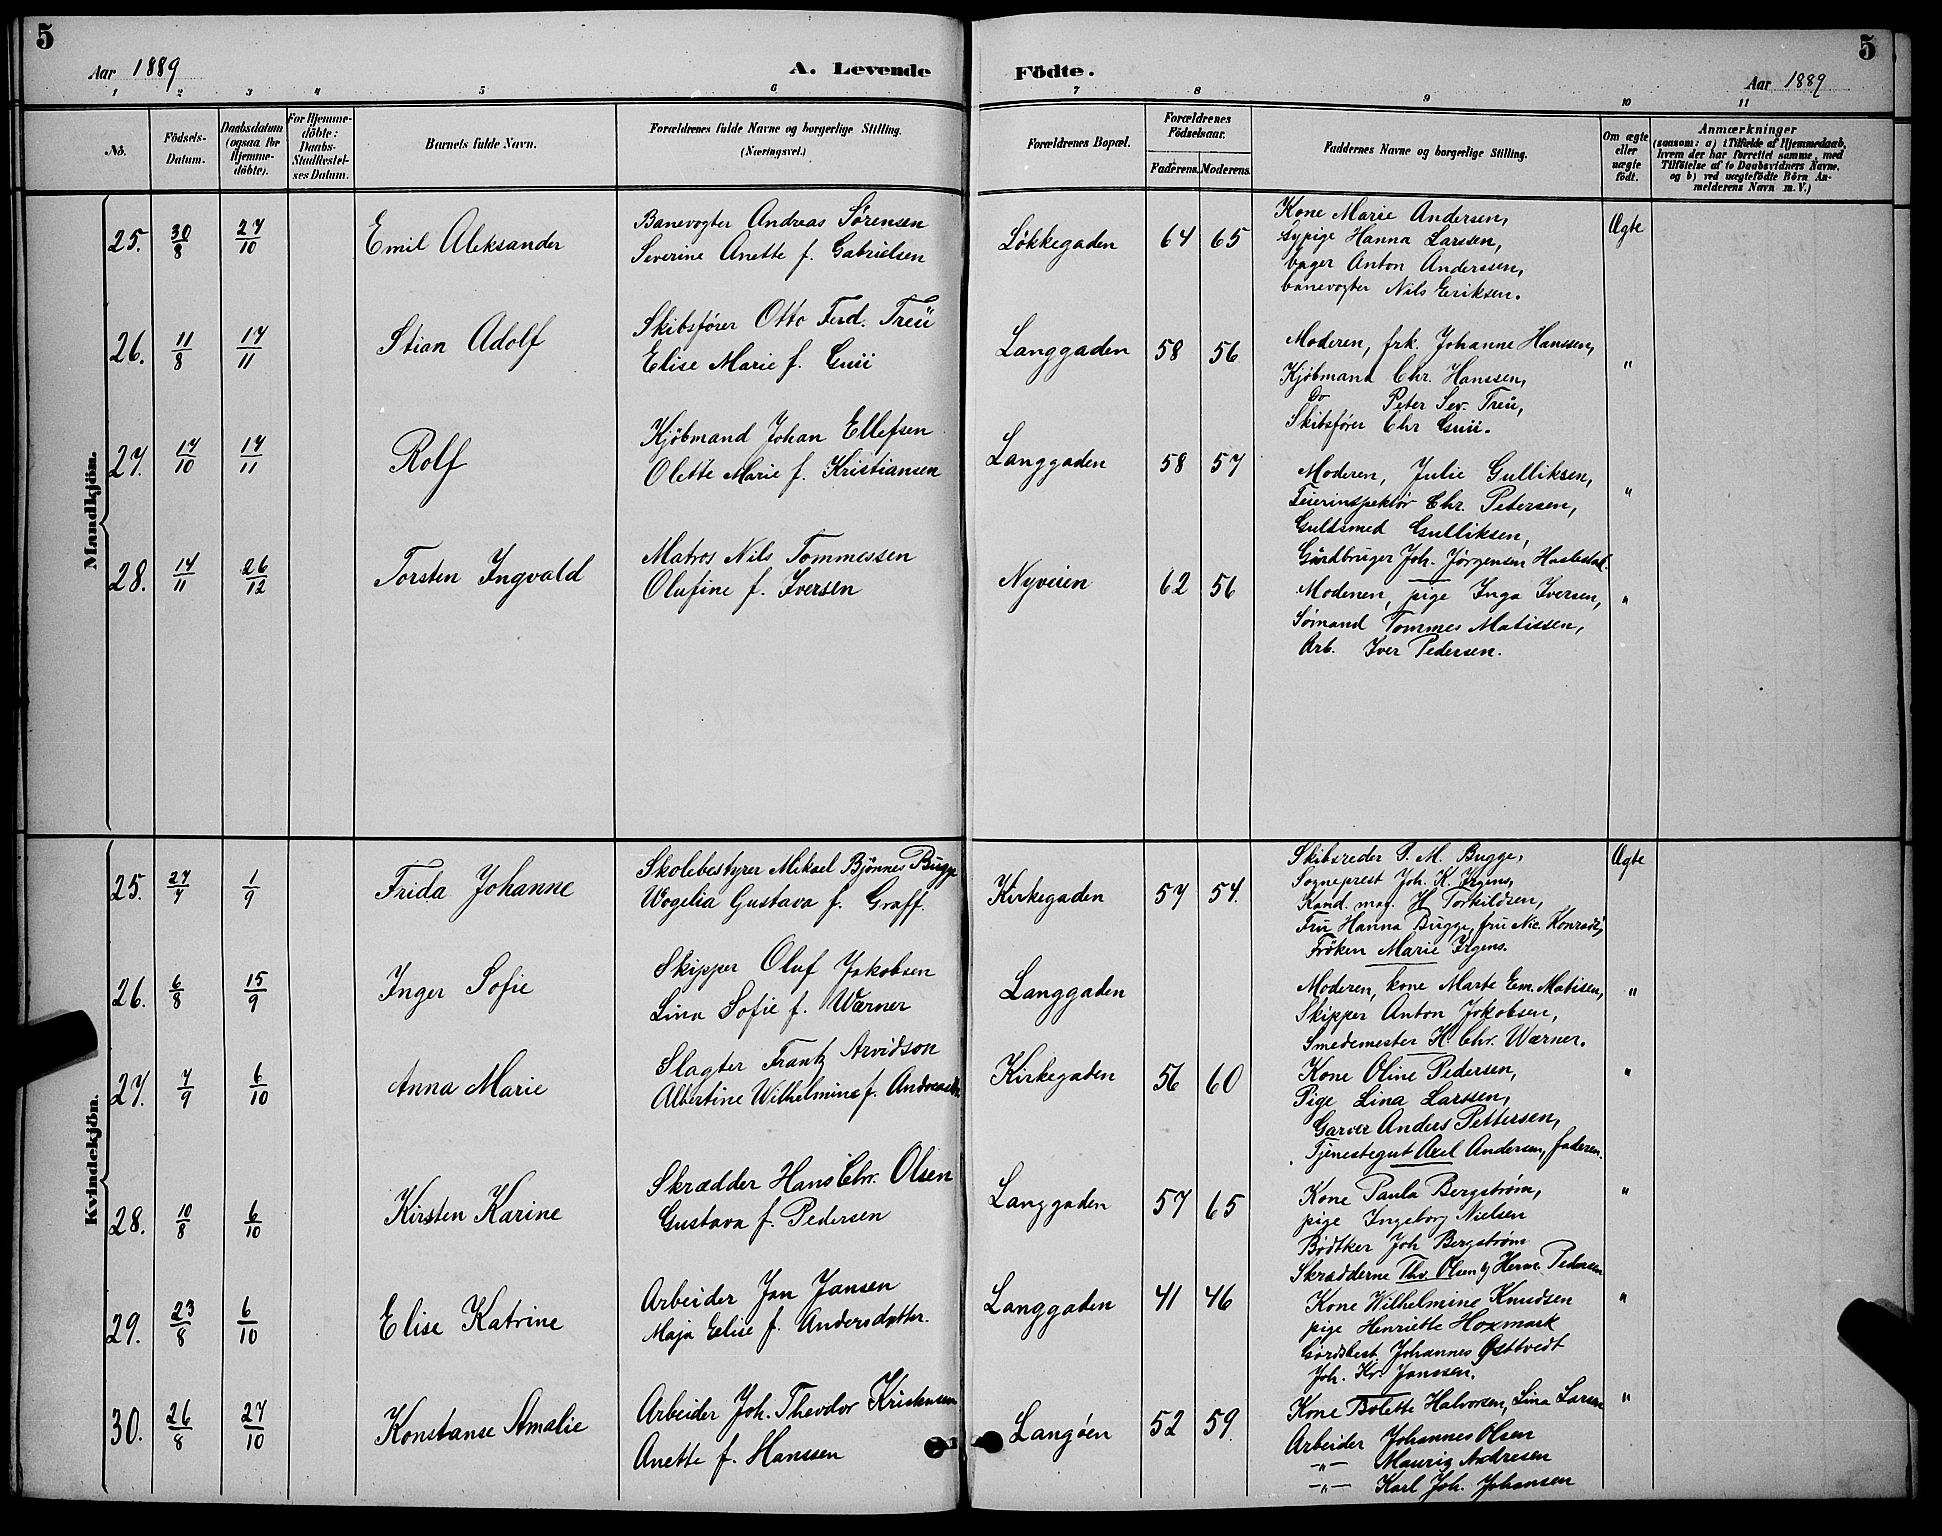 5
Aar 1889
A. Levende
Födte.
Aar 1889
5
1 2 3 4 5 6 7 8 9 10 11
No.
Födsels-Datum.
Daabsdatum (ogsaa for Hjemme-döbte).
For Hjemme-döbte: Daabs-Stadfæstel-ses Datum.
Barnets fulde Navn.
Forældrenes fulde Navne og borgerlige Stilling. (Næringsvei.)
Forældrenes Bopæl.
Forældrenes Födselsaar.
Faderens. Moderens.
Faddernes Navne og borgerlige Stilling.
Om ægte eller uægte födt.
Anmærkninger
(saasom: a) i Tilfælde af Hjemmedaab, hvem der har forrettet samme, med Tilföielse af to Daabsvidners Navne, og b) ved uægtefödte Börn An-melderens Navn m. V.)
Mandkjön.
25. 30/8 27/10 Emil Aleksander
Banevogter Andreas Sørensen
Severine Anette f. Gabrielsen
Løkkegaden 64 65
Kone Marie Andersen,
Sypige Hanna Larssen,
bager Anton Anderssen,
banevogter Nils Eriksen.
Ægte
26. 11/8 17/11 Stian Adolf
Skibsfører Otto Ferd. Treü
Elise Marie f. Grüi
Langgaden 58 56
Moderen, frk. Johanne Hanssen,
Kjøbmand Chr. Hanssen,
Do Peter Sev. Treü,
Skibsfører Chr Grüi.
"
27. 17/10 17/11 Rolf
Kjøbmand Johan Ellefsen
Olette Marie f. Kristiansen
Langgaden 58 57
Moderen, Julie Gulliksen,
Feierinspektør Chr. Petersen,
Guldsmed Gulliksen,
Gårdbruger Joh. Jørgensen
"
28. 14/11 26/12 Torsten Ingvald
Matros Nils Tommessen
Olufine f. Iversen
Nyveien 62 56
Moderen, pige Inga Iversen,
Sømand Tommes Matissen,
Arb. Iver Pedersen.
"
Kvindekjön.
25. 27/7 1/9 Frida Johanne
Skolebestyrer Mikael Bjønnes Bugge
Wogelia Gustava f. Graff.
Kirkegaden 57 54.
Skibsreder P. M. Bugge,
Sogneprest Joh. K. Irgens,
Kand. mag. H Torkildsen,
Fru Hanna Bugge, fru Nic. Konradi,
Frøken Marie Irgens.
Ægte
26. 6/8 15/9 Inger Sofie
Skipper Oluf Jakobsen
Lina Sofie f. Wærner
Langgaden
Moderen, kone Marte Em. Matisen,
Skipper Anton Jakobsen,
Smedemester H. Chr. Wærner.
"
27. 7/9 6/10 Anna Marie
Slagter Frantz Arvidson
Albertine Wilhelmine f.
Kirkegaden 56 60
Kone Oline Pedersen,
Pige Lina Larssen,
Garver Anders Pettersen,
Tjenestegut Axel Andersen, faderen.
"
28. 10/8 6/10 Kirsten Karine
Skrædder Hans Chr. Olsen
Gustava f. Pedersen
Langgaden 57 65
Kone Paula Bergstrøm,
pige Ingeborg Nielsen
Bødtker Joh Bergstrøm
Skrædderne Thv. Olsen & Herm. Pedersen
"
29. 23/8 6/10 Elise Katrine
Arbeider Jan Jansen
Maja Elise f. Andersdatter.
Langgaden 41 46
Kone Wilhelmine Knudsen
pige Henriette Hoxmark
Gårdbest Johannes Østtvedt
Joh. Kr. Janssen.
"
30. 26/8 27/10 Konstanse Amalie
Arbeider Joh. Theodor Kristensen
Anette f. Hanssen
Langøen 52 59.
Kone Bolette Halvorsen, Lina Larsen
Arbeider Johannes Olsen
—"— Mauritz Andresen
—"— Karl Joh. Johansen
"